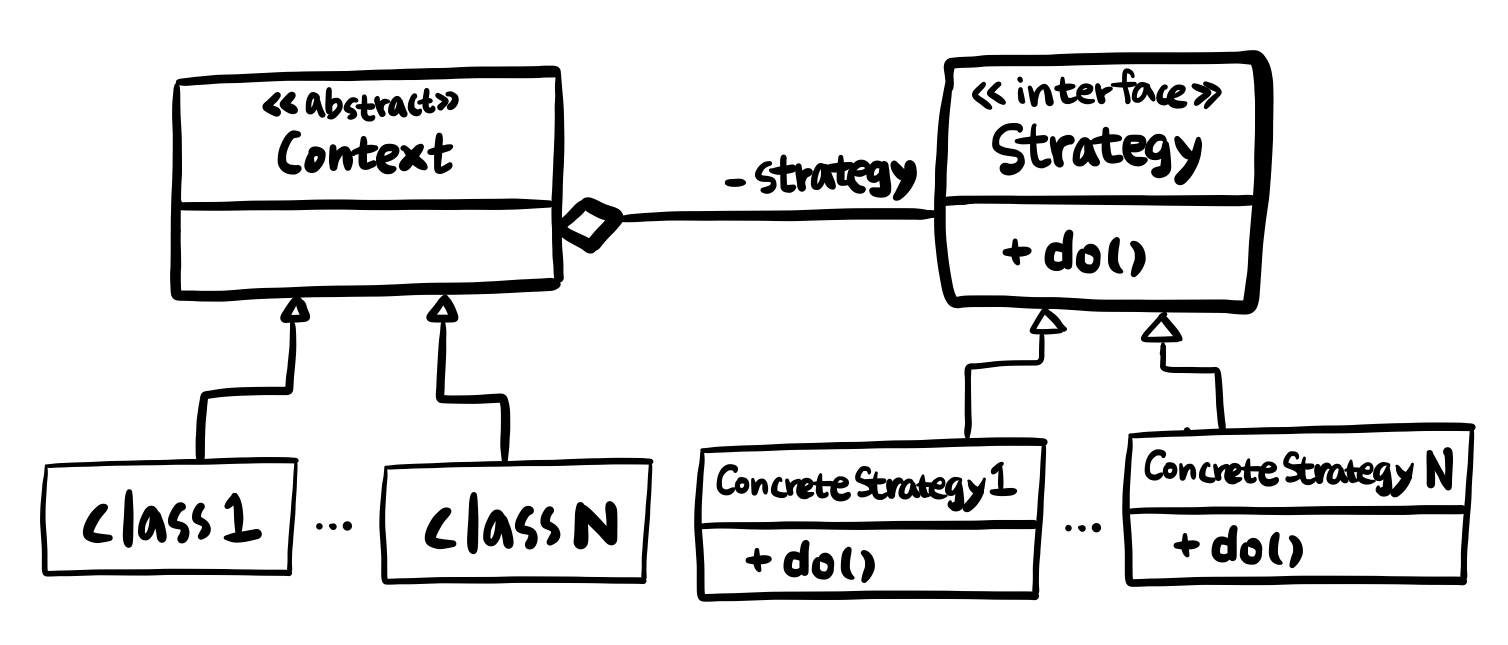 << abstract>>
Context
- strategy
<< interface>>
Strategy
+ do()
class 1
...
class N
Concrete Strategy 1
+ do()
...
Concrete Strategy N
+ do()